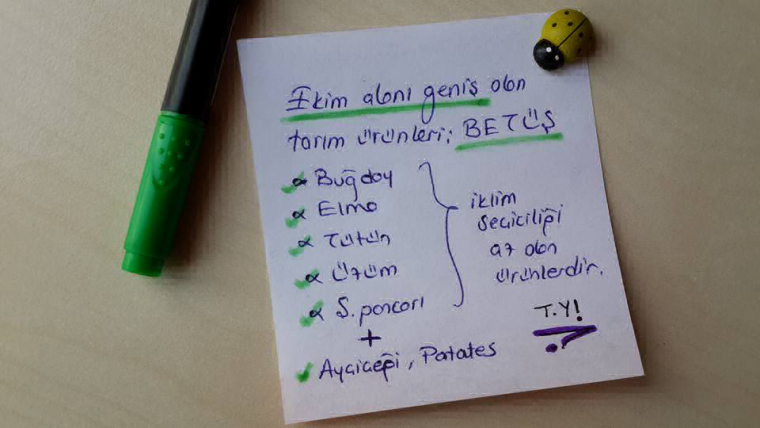 Ekim alanı geniş olan
tarım ürünleri; BETÜŞ
Buğday
Elma
Tütün
Üzüm
Ş. pancarı
iklim
seçiciliği
az olan
ürünlerdir.
T.Y!
+
Ayçiçeği, Patates